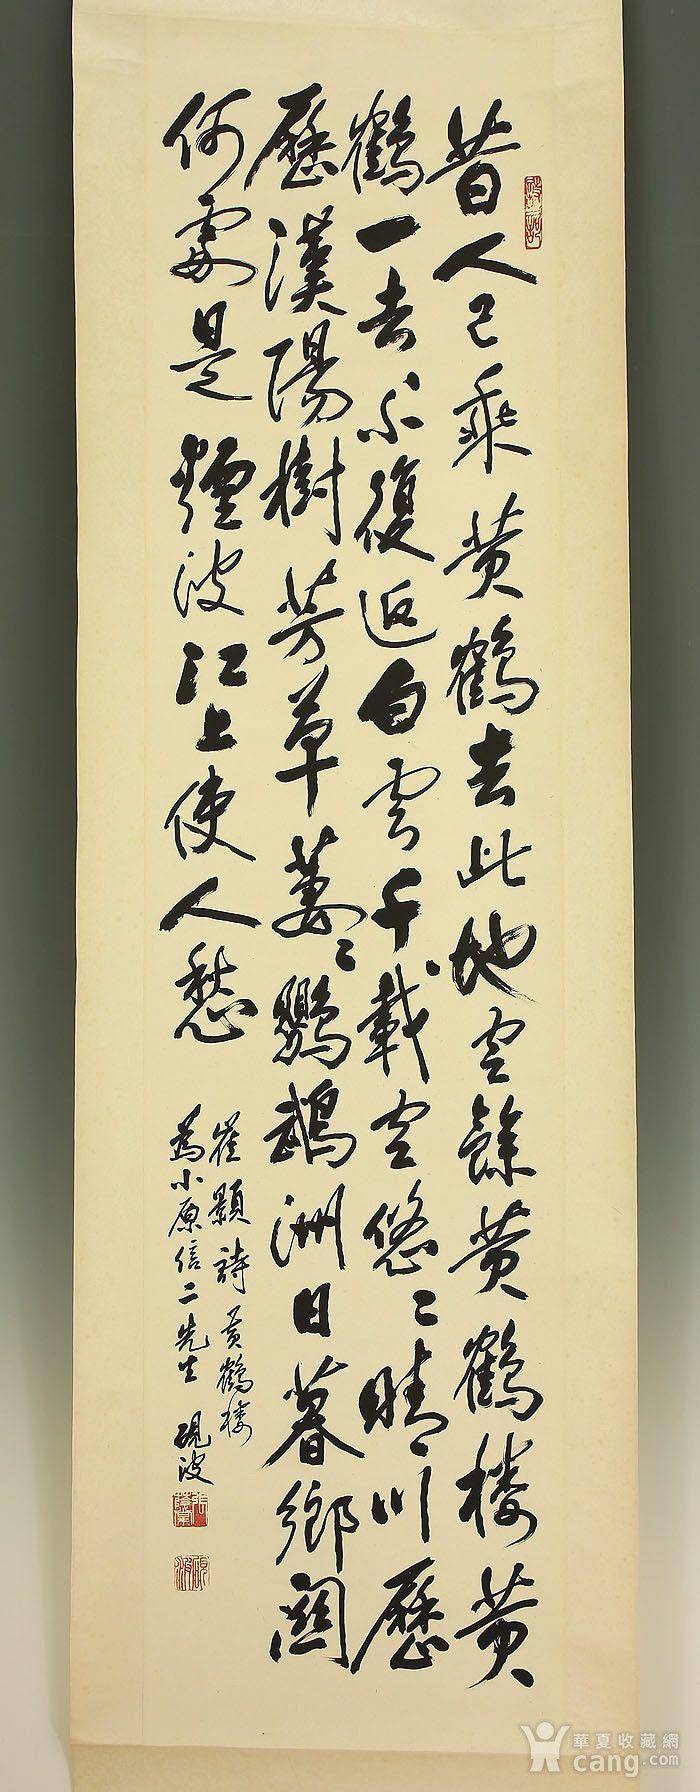 昔人已乘黄鶴去此地空餘黄鶴楼黄
鶴一去不復返白雲千載空悠〻晴川歷
歷漢陽樹芳草萋〻鸚鵡洲日暮鄉関
何處是煙波江上使人愁
崔顥詩黄鶴楼
為小原信二先生 硯波
華夏收藏網
cang.com